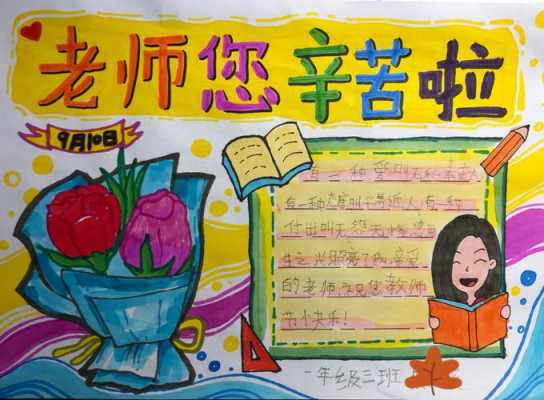 老师您辛苦啦
9月10日
有一种爱叫
有一种态度叫平易近人有一种
付出叫无怨无悔
生之光照亮了我亲爱
的老师祝您教师
节小快乐！
一年级三班